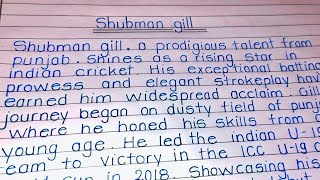 Shubman gill
Shubman gill, a prodigious talent from
punjab. shines as a rising star in
indian cricket. His exceptional batting
prowess and elegant strokeplay hav
earned him widespread acclaim. Gill
journey began on dusty field of punj
where he honed his skills from a
young age. He led the indian U-19
eam to victory in the ICC U-19
Cup in 2018. Showcasing his